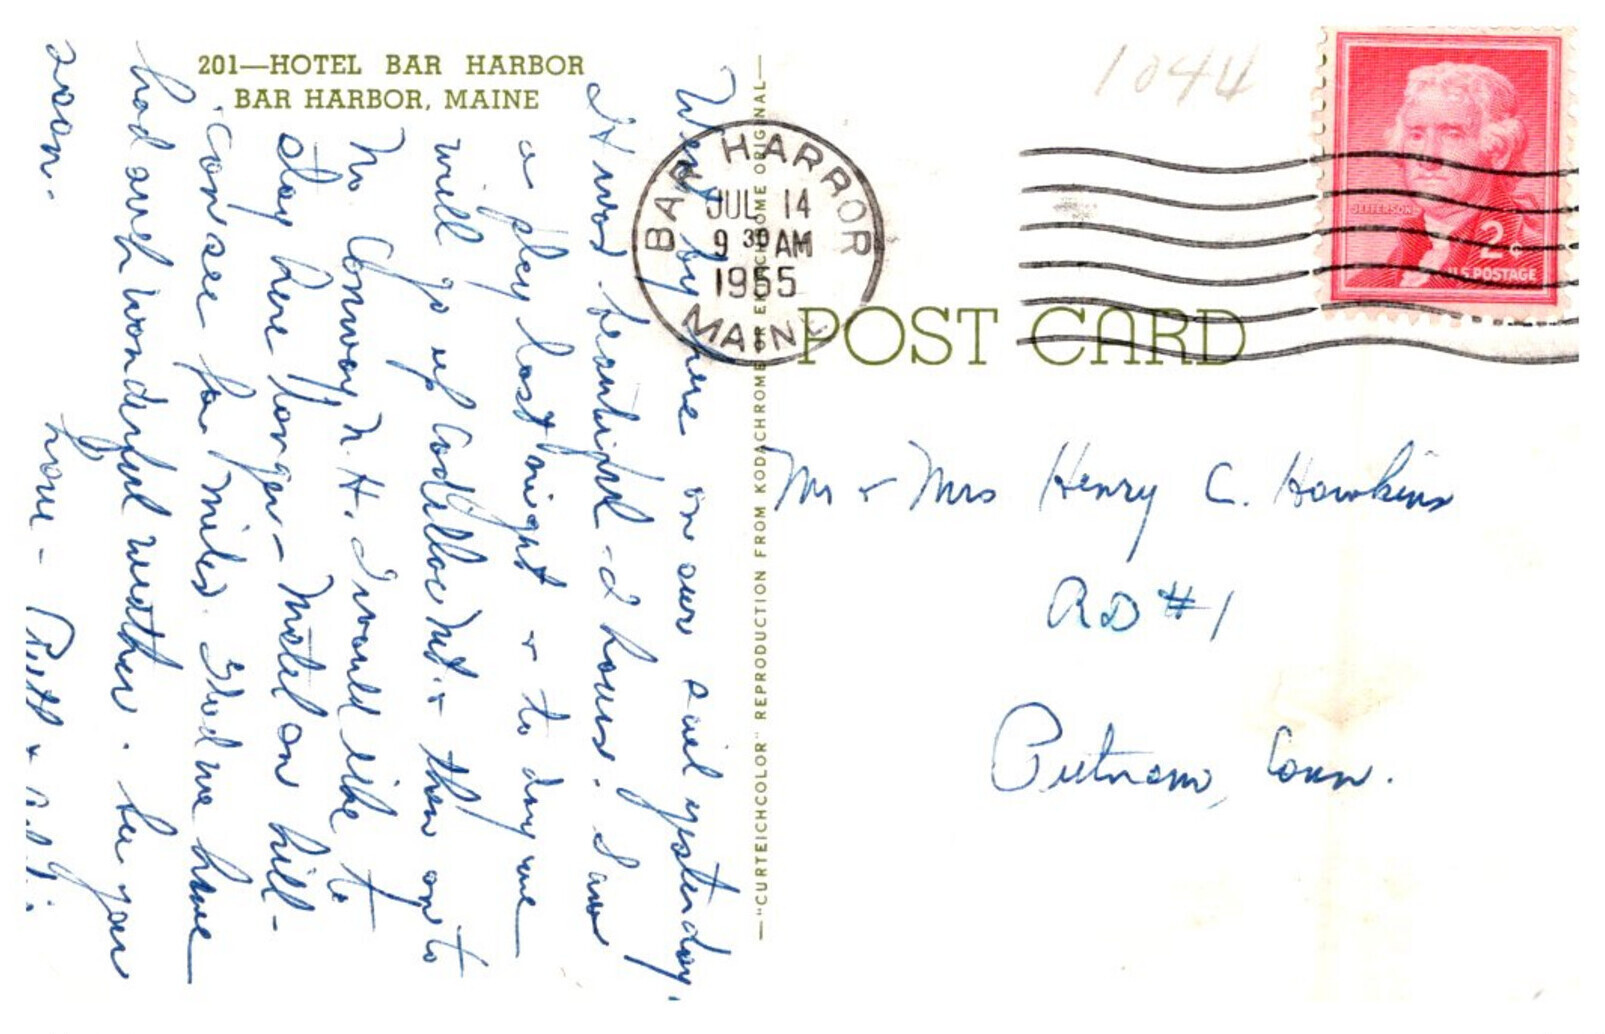 201—HOTEL BAR HARBOR
BAR HARBOR, MAINE
Went by here on our sail yesterday.
It was beautiful - 2 hours. Saw
a play last night & to day we
will go up Cadillac Mt. & then on to
No. Conway, N. H. I would like to
stay here longer - Motel on hill -
can see for miles. Glad we have
had such wonderful weather. See you
soon.
Love -
"CURTEICHCOLOR" REPRODUCTION FROM KODACHROME OR EKTACHROME ORIGINAL
BAR HARBOR
JUL 14
9 30 AM
1955
MAINE
1044
JEFFERSON
2¢
U.S. POSTAGE
POST CARD
Mr & Mrs Henry C. Hawkins
RD #1
Putnam, Conn.